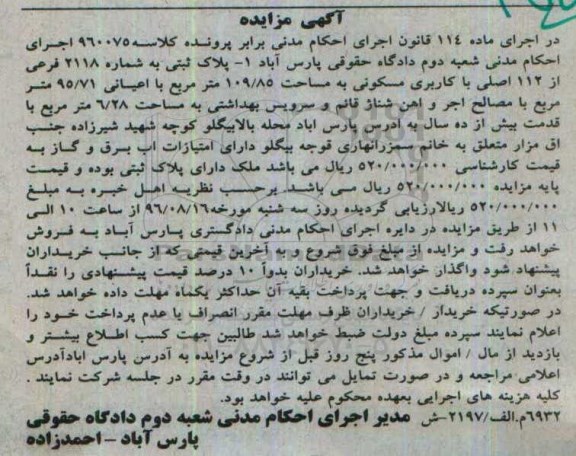 آگهی مزایده
در اجرای ماده ۱۱٤ قانون اجرای احکام مدنی برابر پرونده کلاسه ۹٦۰۰۷٥ اجرای
احکام مدنی شعبه دوم دادگاه حقوقی پارس آباد ۱- پلاک ثبتی به شماره ۲۱۱۸ فرعی
از ۱۱۲ اصلی با کاربری مسکونی به مساحت ۱۰۹/۸٥ متر مربع با اعیانی ۹٥/۷۱ متر
مربع با مصالح اجر و اهن شناژ قائم و سرویس بهداشتی به مساحت ٦/۲۸ متر مربع با
قدمت بیش از ده سال به ادرس پارس اباد محله بالابیگلو کوچه شهید شیرزاده جنب
اق مزار متعلق به خانم بهاری قوجه بیگلو دارای امتیازات اب برق و گاز به
قیمت کارشناسی ٥۲۰/۰۰۰/۰۰۰ ریال می باشد ملک دارای پلاک ثبتی بوده و قیمت
پایه مزایده ٥۲۰/۰۰۰/۰۰۰ ریال می باشد. برحسب نظریه اهل خبره به مبلغ
٥۲۰/۰۰۰/۰۰۰ ریالارزیابی گردیده روز سه شنبه مورخه ۹٦/۰۸/۱٦ از ساعت ۱۰ الی
۱۱ از طریق مزایده در دایره اجرای احکام مدنی دادگستری پارس آباد به فروش
خواهد رفت و مزایده از مبلغ فوق شروع و به آخرین قیمتی که از جانب خریداران
پیشنهاد شود واگذار خواهد شد. خریداران بدواً ۱۰ درصد قیمت پیشنهادی را نقداً
بعنوان سپرده دریافت و جهت پرداخت بقیه آن حداکثر یکماه مهلت داده خواهد شد.
در صورتیکه خریدار / خریداران ظرف مهلت مقرر انصراف یا عدم پرداخت خود را
اعلام نمایند سپرده مبلغ دولت ضبط خواهد شد طالبین جهت کسب اطلاع بیشتر و
بازدید از مال / اموال مذکور پنج روز قبل از شروع مزایده به آدرس پارس ابادآدرس
اعلامی مراجعه و در صورت تمایل می توانند در وقت مقرر در جلسه شرکت نمایند .
کلیه هزینه های اجرایی بعهده محکوم علیه خواهد بود.
٦۹۳۲م.الف/۲۱۹۷-ش مدیر اجرای احکام مدنی شعبه دوم دادگاه حقوقی
پارس آباد - احمدزاده